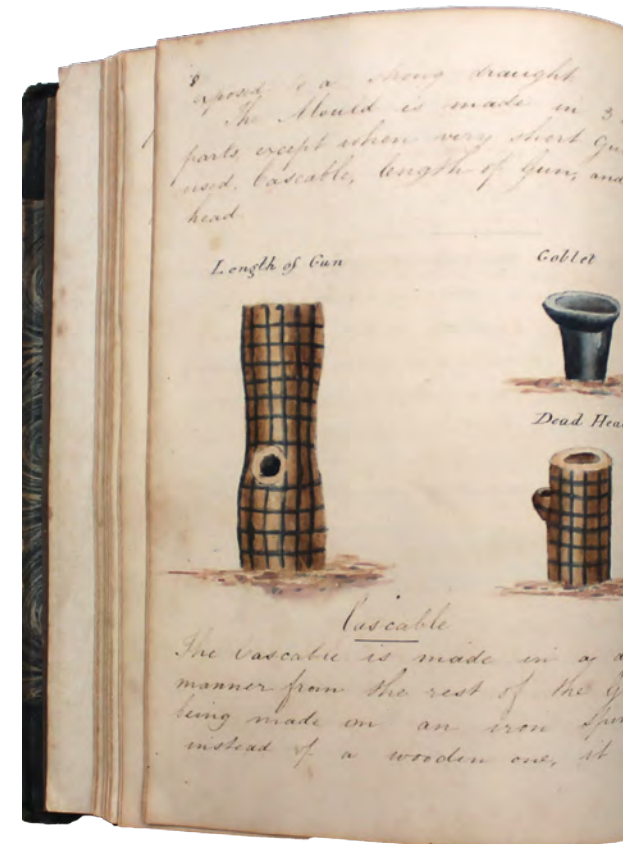 8
exposed to a strong draught
The Mould is made in 3
parts, except when very short Gu
used. Cascable, length of Gun, and
head.
Length of Gun
Goblet
Dead Hea
Cascable
The Cascable is made in a d
manner from the rest of the G
being made on an iron Spin
instead of a wooden one, it